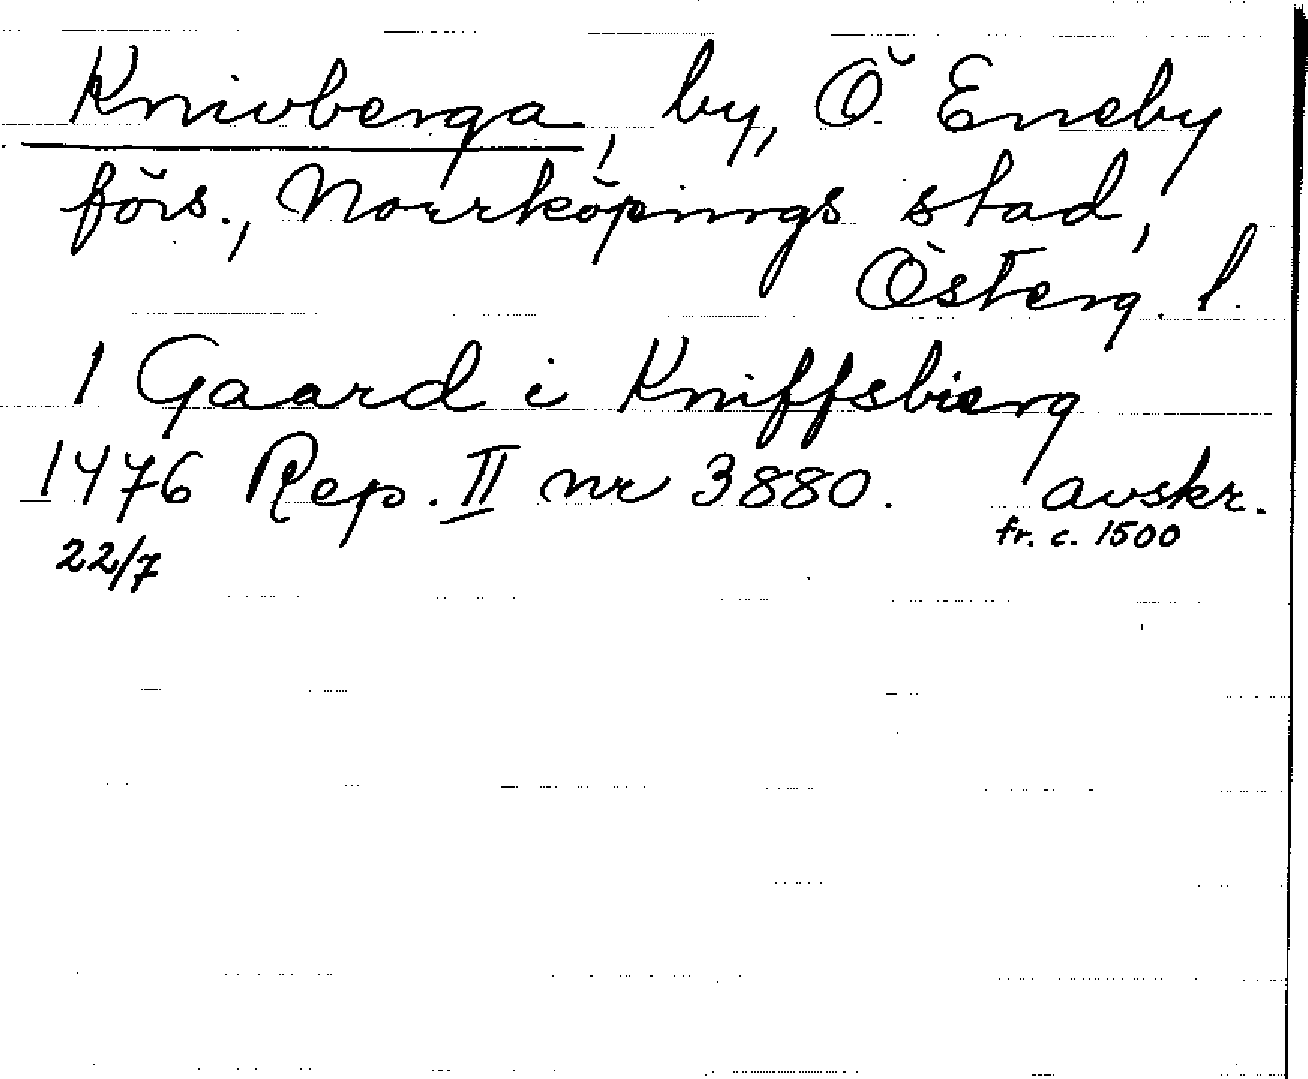 Knivberga, by, Ö Eneby
förs., Norrköpings stad,
Österg. l.
1 Gaard i Kniffsbierg
1476 Rep. II nr 3880. avskr.
fr. c. 1500
22/7